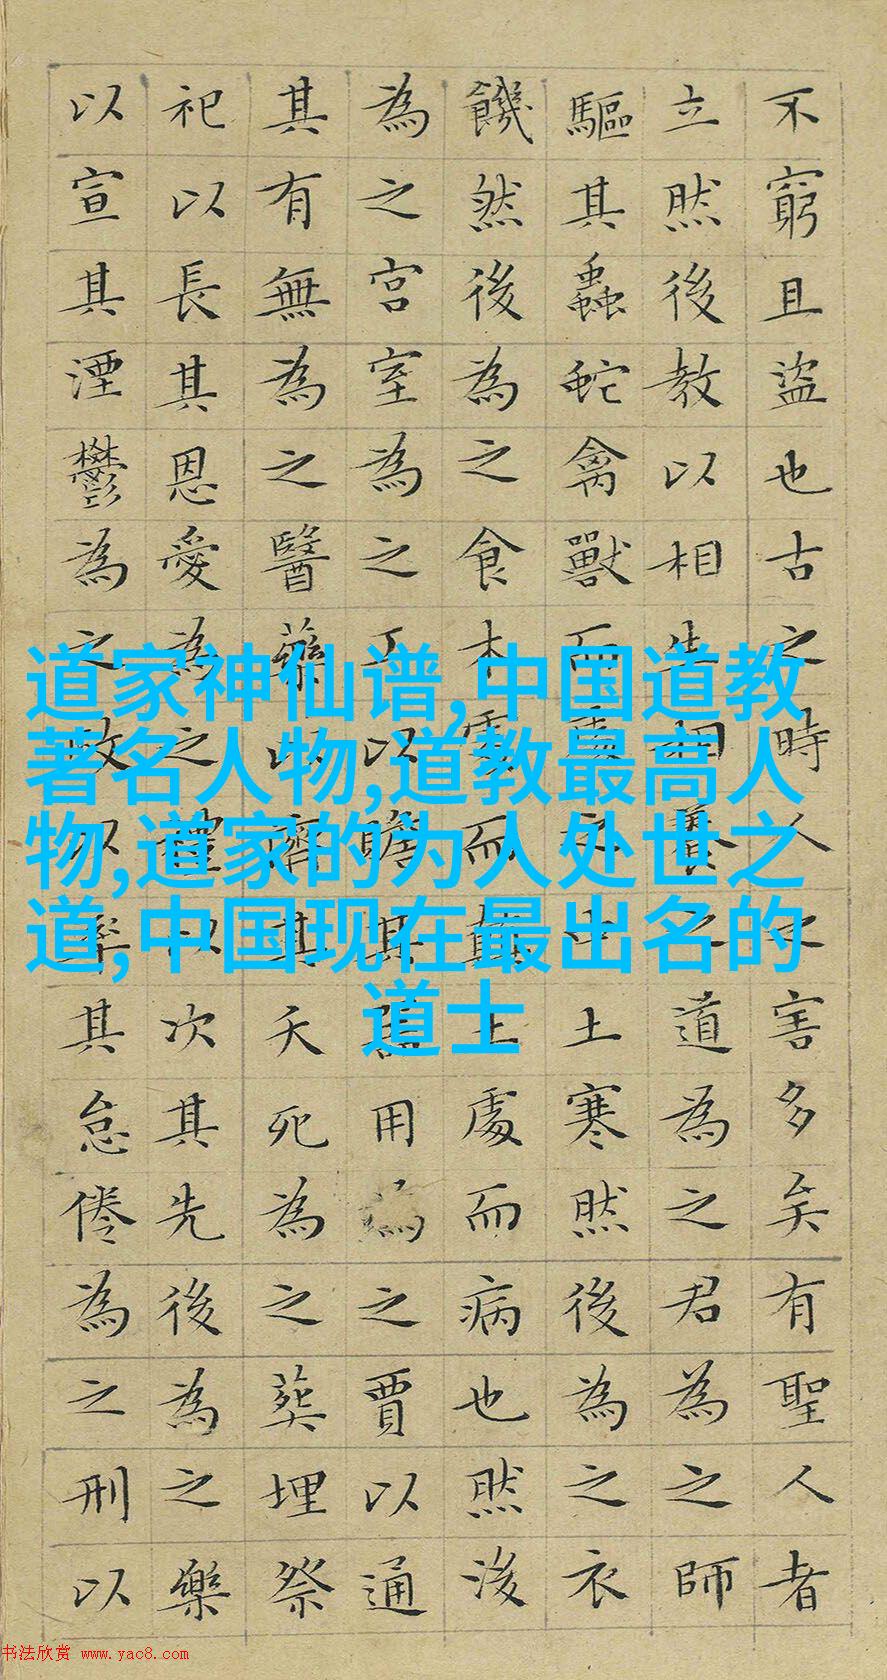 不窮且盜也古之時人之害多矣有聖人者
立然後教以相生相養之道為之君為之師
驅其蟲蛇禽獸而處之中土寒然後為之衣
饑然後為之食木處而顛土處而病也然後
為之宮室為之工以贍其器用為之賈以通
其有無為之醫藥以濟其夭死為之葬埋祭
祀以長其恩愛為之禮以次其先後為之樂
以宣其湮鬱為之政以率其怠倦為之刑以
道家神仙谱,中国道教
著名人物,道教最高人
物,道家的为人处世之
道,中国现在最出名的
道士
书法欣赏 www.yac8.com